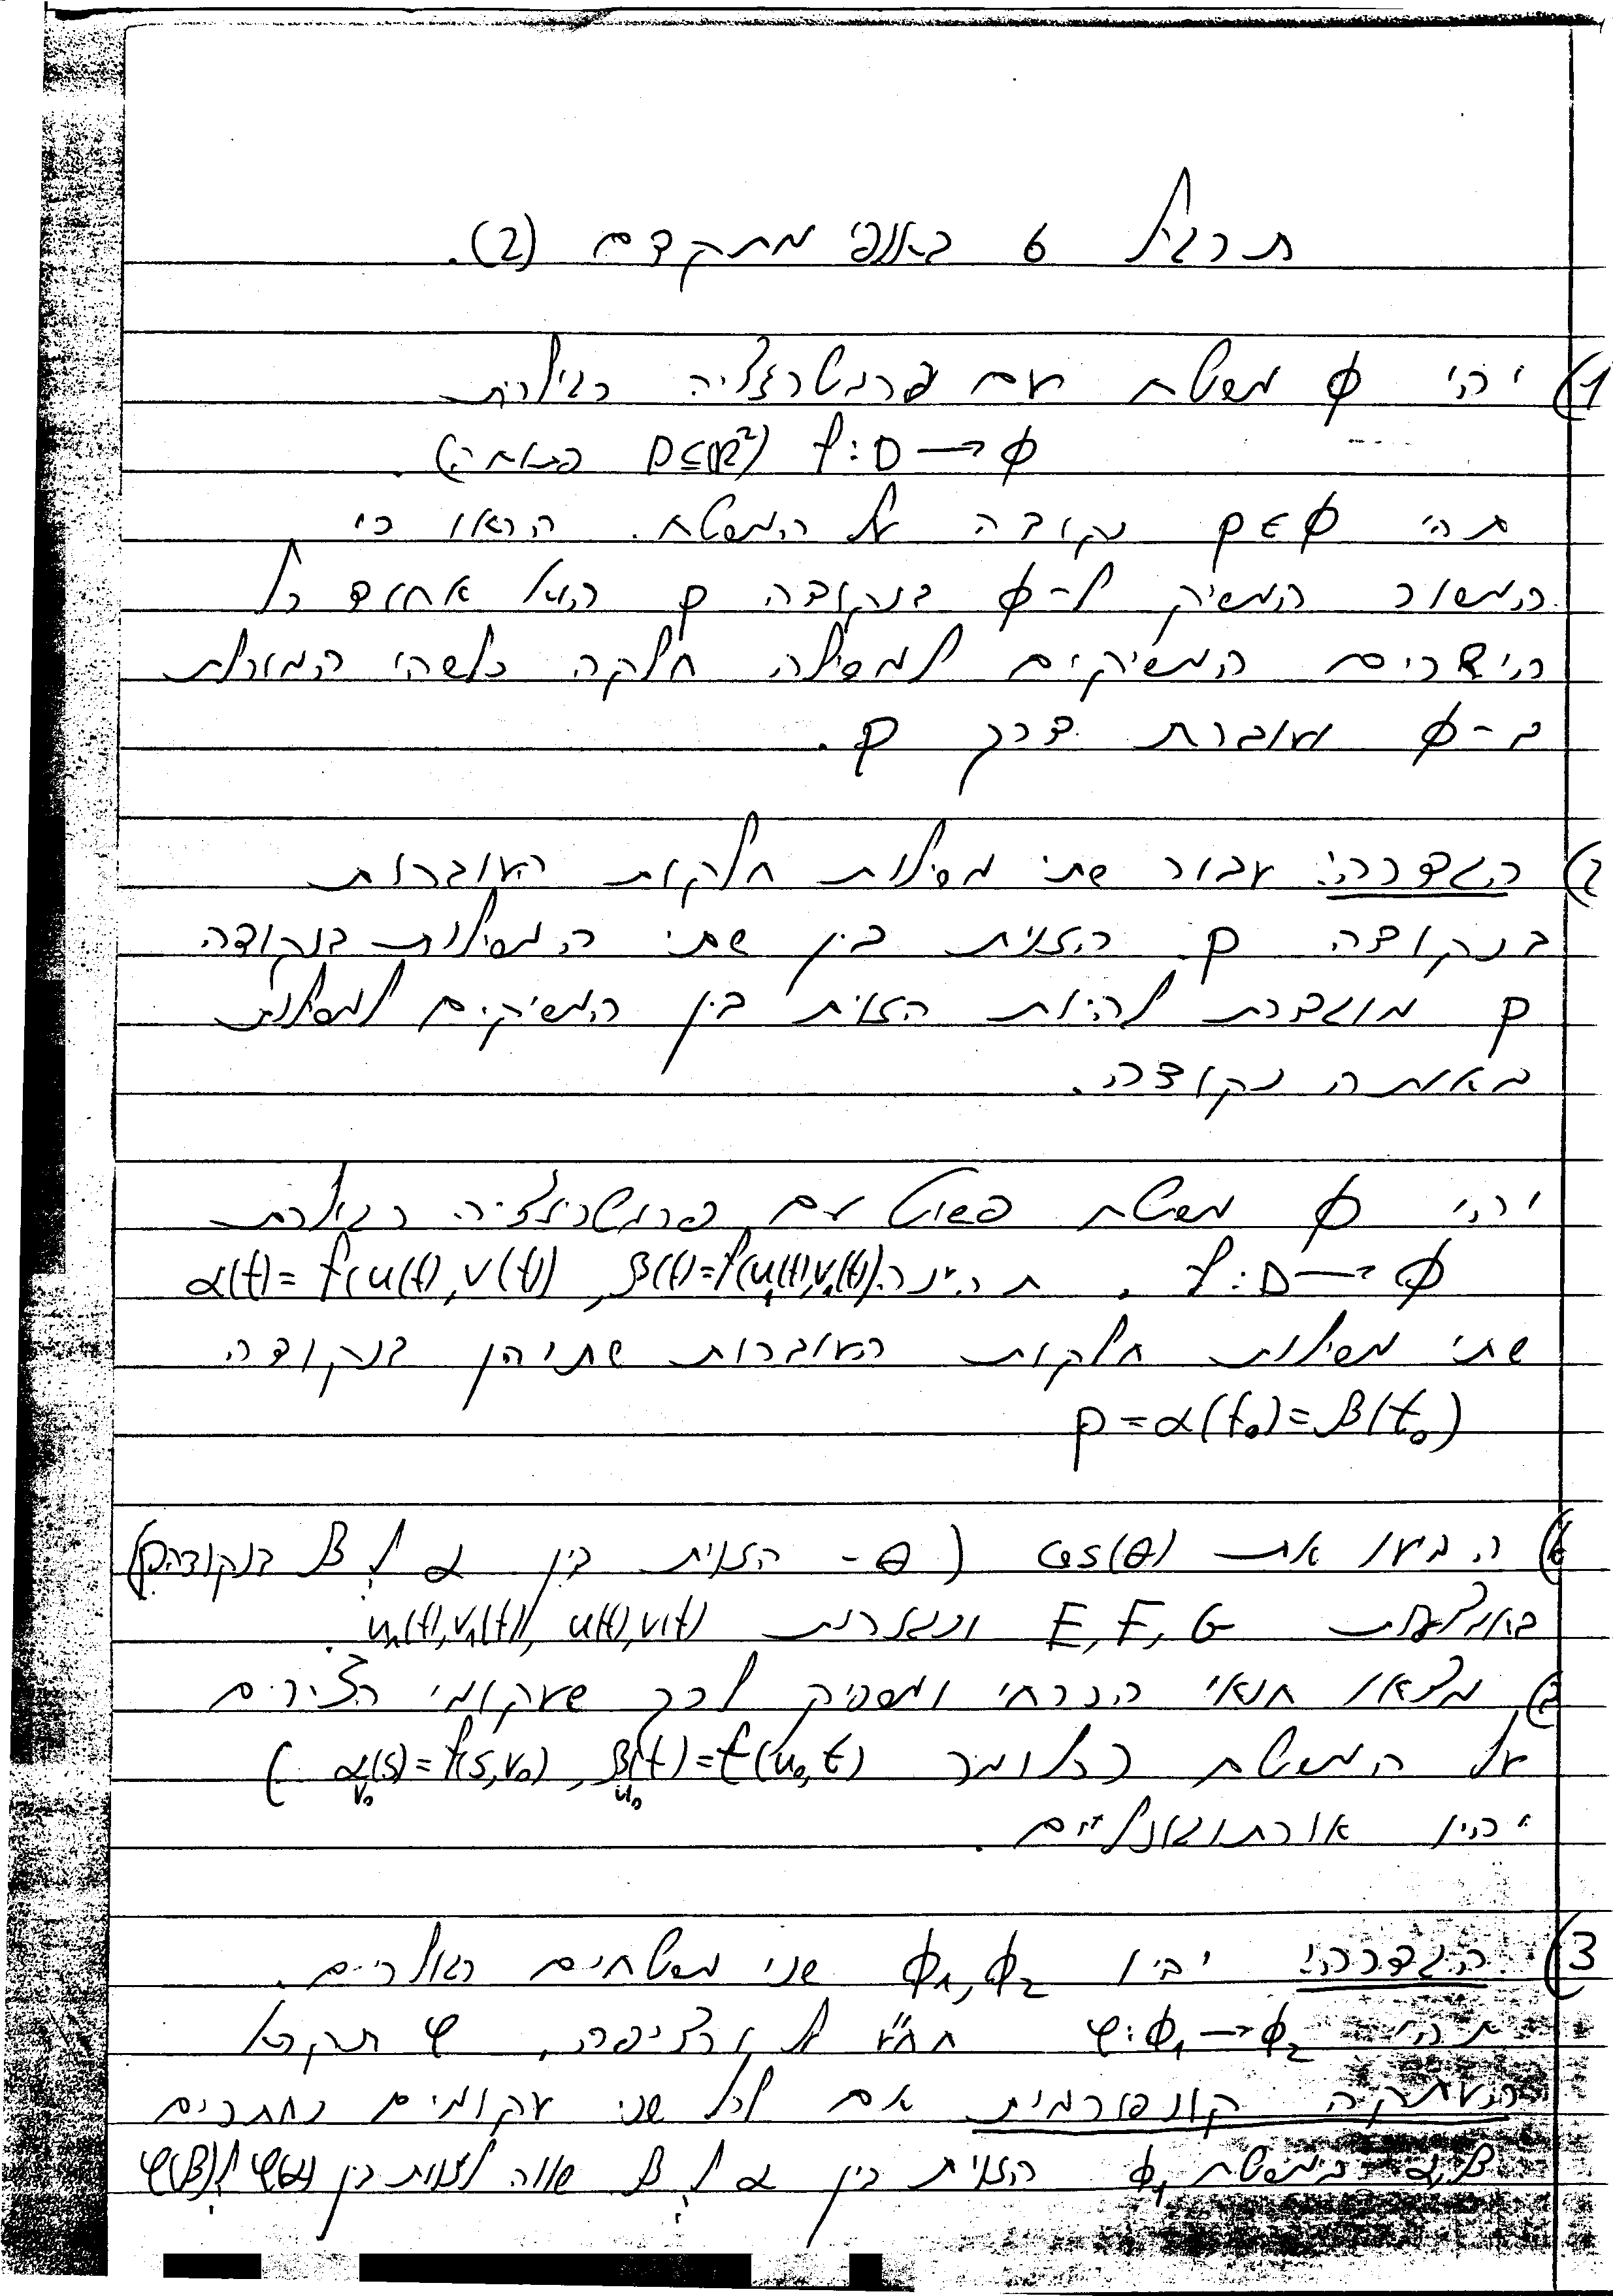 תרגיל 6 באנפי מתקדם (2).
1) יהי φ משטח עם פרמטריזציה רגולרית
f:D→φ (D⊆ℝ² פתוחה).
תהי p∈φ נקודה על המשטח. הראו כי
המישור המשיק ל-φ בנקודה p הוא איחוד כל
הישרים המשיקים למסילה חלקה כלשהי המוכלת
ב-φ ועוברת דרך p.
2) הגדרה: עבור שתי מסילות חלקות העוברות
בנקודה p. הזוית בין שתי המסילות בנקודה
p מוגדרת להיות הזוית בין המשיקים למסילות
באותה נקודה.
יהי φ משטח פשוט עם פרמטריזציה רגולרית
f:D→φ. תהיינה α(t)=f(u(t),v(t)), β(t)=f(u₁(t),v₁(t))
שתי מסילות חלקות העוברות שתיהן בנקודה
p=α(t₀)=β(t₀)
א) הביעו את cos(θ) (θ- הזוית בין α ל β בנקודה p)
באמצעות E,F,G ונגזרות u(t),v(t), u₁(t),v₁(t).
ב) מצאו תנאי הכרחי ומספיק לכך שעקומי הצירים
על המשטח (כלומר α_{v₀}(s)=f(s,v₀), β_{u₀}(t)=f(u₀,t))
יהיו אורתוגונליים.
3) הגדרה: יהיו φ₁,φ₂ שני משטחים רגולריים.
תהי φ:φ₁→φ₂ חח"ע ועל ורציפה, φ תקרא
העתקה קונפורמית אם לכל שני עקומים נחתכים
α,β במשטח φ₁ הזוית בין α ל β שווה לזוית בין φ(α) ל φ(β)